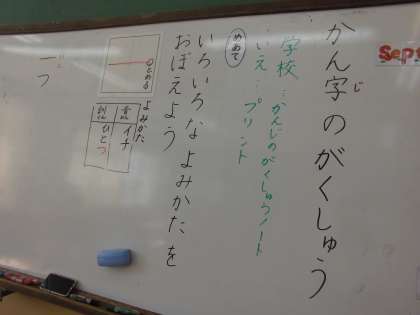 かん字のがくしゅう
じ
学校…かんじのがくしゅうノート
いえ…プリント
めあて
いろいろなよみかたを
おぼえよう
よみかた
音 イチ
訓 ひとつ
一つ
Sep